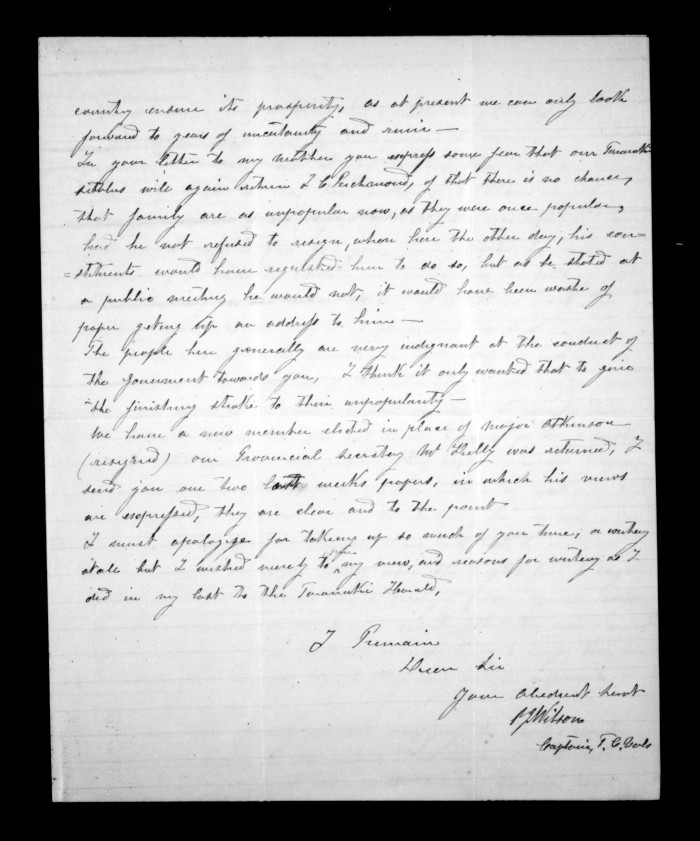 country ensure its prosperity, as at present we can only look
forward to years of uncertainty and ruin —
In your letter to my mother you express some fear that our Taranaki
settlers will again return J C Richmond, of that there is no chance,
that family are as unpopular now, as they were once popular,
had he not refused to resign, when here the other day, his con=
=stituents would have requested him to do so, but as he stated at
a public meeting he would not, it would have been waste of
paper geting up an address to him —
The people here generally are very indignant at the conduct of
the Government towards you, I think it only wanted that to give
the finishing stroke to their unpopularity —
We have a new member elected in place of Major Atkinson
(resigned) our Provincial Secretary Mr Kelly was returned, I
send you one two last weeks papers, in which his views
are expressed, they are clear and to the point
I must apologise for taking up so much of your time, or writing
atall but I wished merely to my view, and reasons for writing as I
did in my last to the Taranaki Herald,
I Remain
Dear Sir
Your Obedient Servt
Wilson
Captain, T.